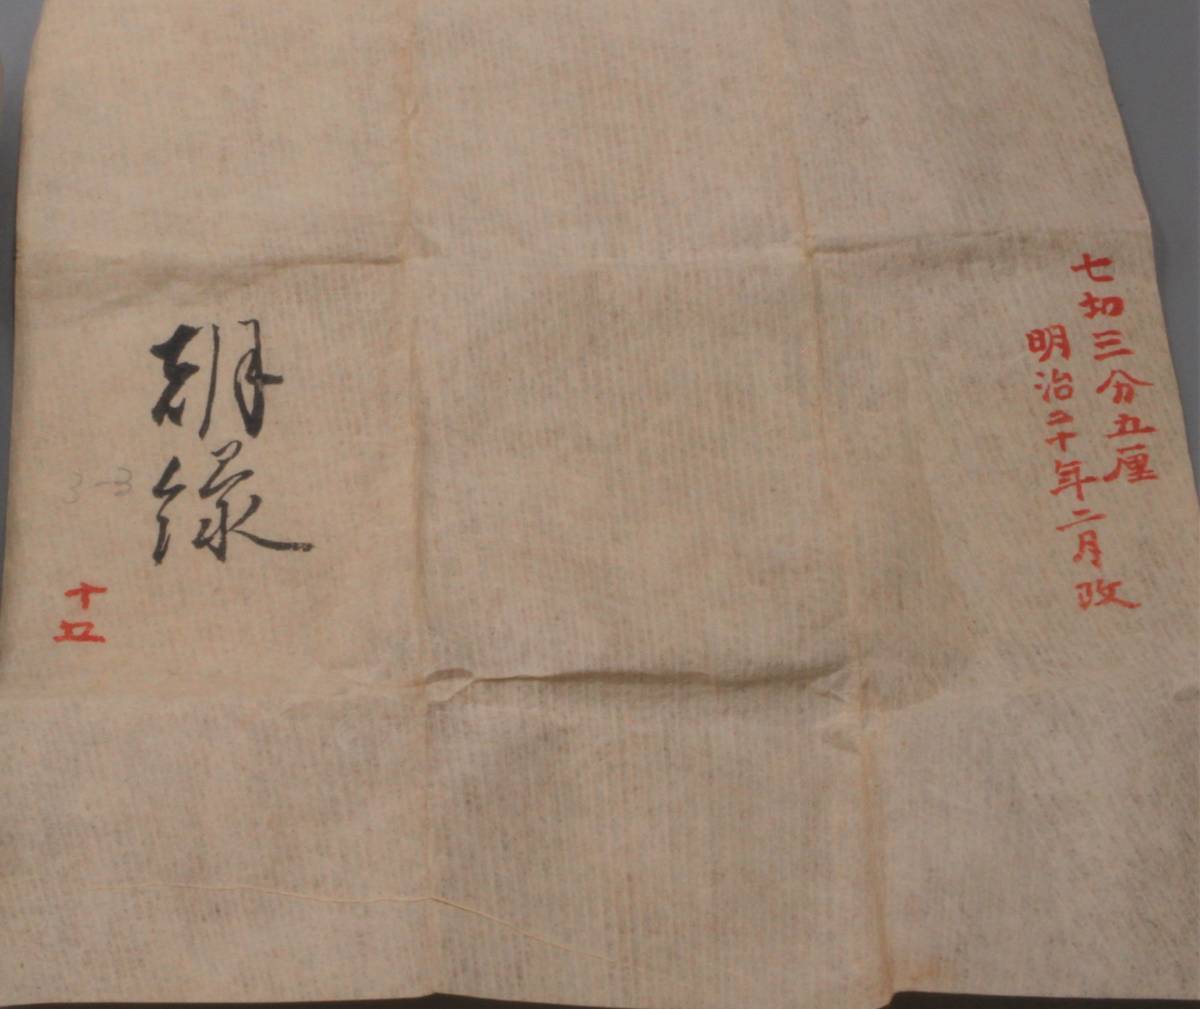 七匁三分五厘
明治二十年二月改
朝緑
十五